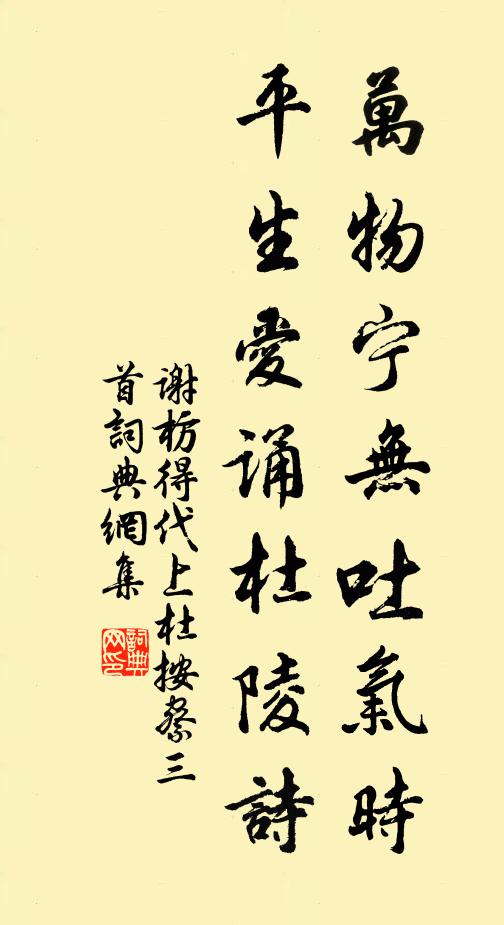 萬物宁無吐氣時
平生愛诵杜陵詩
谢枋得代上杜按察三
首詞典網集
詞典
网印